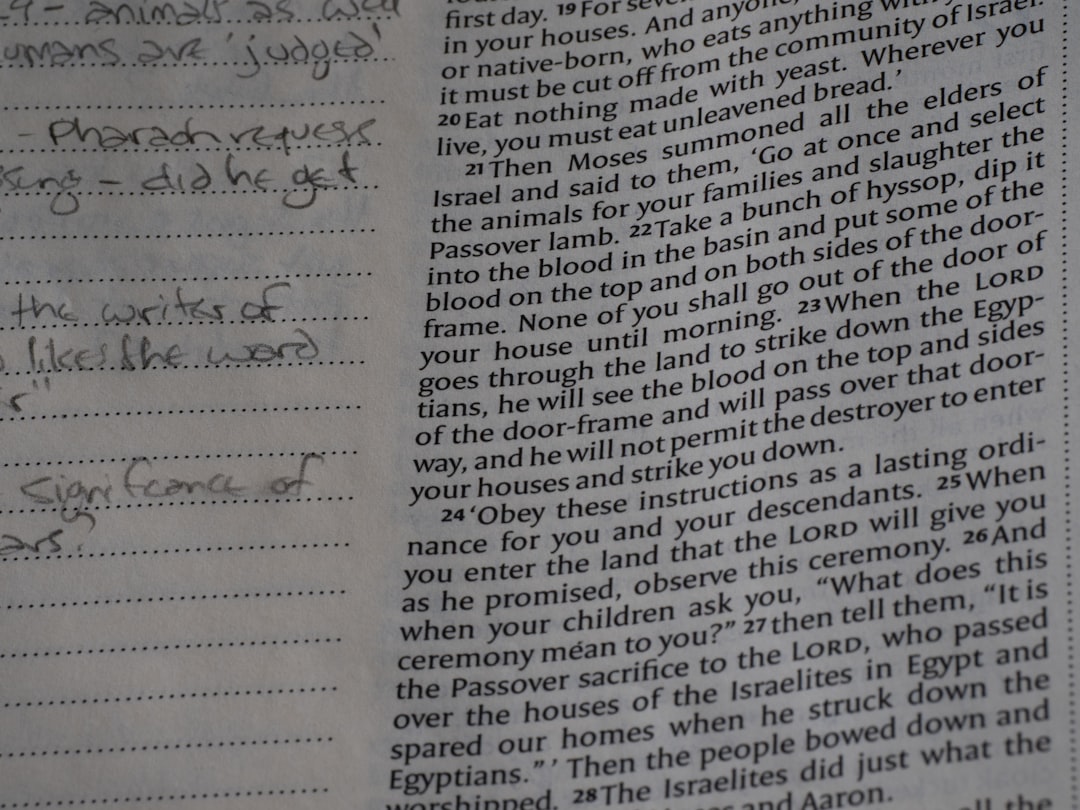 animals as well
umans are 'judged'
- Pharaoh requess
sing - did he get
the writer of
likes the word
significance of
ars?
first day. 19 For
in your houses. And anyone,
or native-born, who eats anything with
it must be cut off from the community of Israel.
20 Eat nothing made with yeast. Wherever you
live, you must eat unleavened bread.’
21 Then Moses summoned all the elders of
Israel and said to them, ‘Go at once and select
the animals for your families and slaughter the
Passover lamb. 22 Take a bunch of hyssop, dip it
into the blood in the basin and put some of the
blood on the top and on both sides of the door-
frame. None of you shall go out of the door of
your house until morning. 23 When the LORD
goes through the land to strike down the Egyp-
tians, he will see the blood on the top and sides
of the door-frame and will pass over that door-
way, and he will not permit the destroyer to enter
your houses and strike you down.
24 ‘Obey these instructions as a lasting ordi-
nance for you and your descendants. 25 When
you enter the land that the LORD will give you
as he promised, observe this ceremony. 26 And
when your children ask you, “What does this
ceremony mean to you?” 27 then tell them, “It is
the Passover sacrifice to the LORD, who passed
over the houses of the Israelites in Egypt and
spared our homes when he struck down the
Egyptians.” ’ Then the people bowed down and
worshipped. 28 The Israelites did just what the
and Aaron.